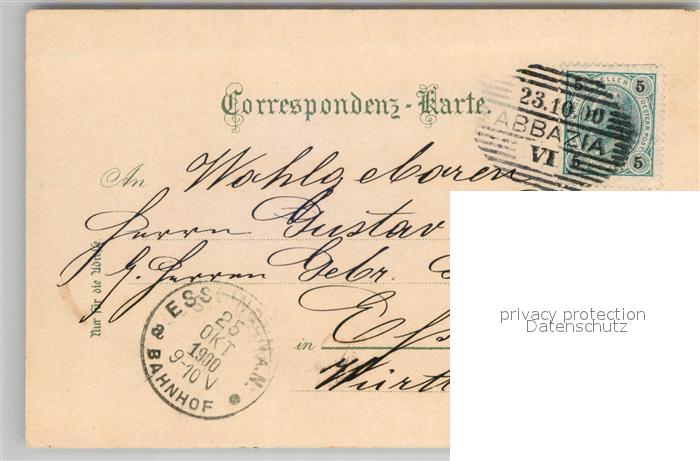 Correspondenz-Karte.
5 HELLER 5
23.10.00
ABBAZIA
VI
5 5
An Wohlgeboren
Herrn Gustav
p. Herren Gebr.
Nur für die Adresse
in
Württ
ESSLINGEN A.N.
25
OKT
1900
9-10 V
BAHNHOF
privacy protection
Datenschutz